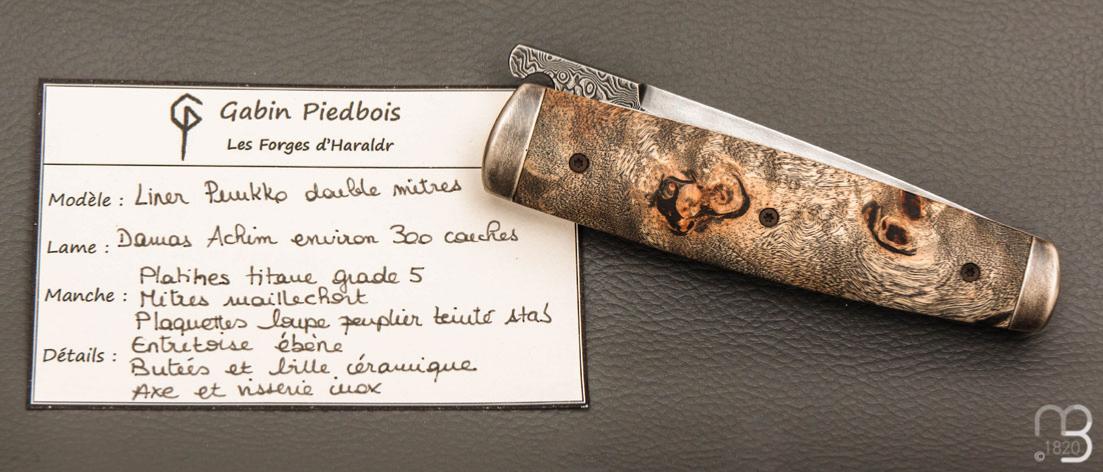 Gabin Piedbois
Les Forges d'Haraldr
Modèle : Liner Puukko double mitres
Lame : Damas Achim environ 300 couches
Platines titane grade 5
Manche : Mitres maillechort
Plaquettes loupe peuplier teinté stab
Entretoise ébène
Détails : Butées et bille céramique
Axe et visserie inox
© 1820